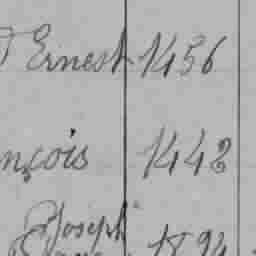 Ernest 1456
nçois 1442
Joseph
1894